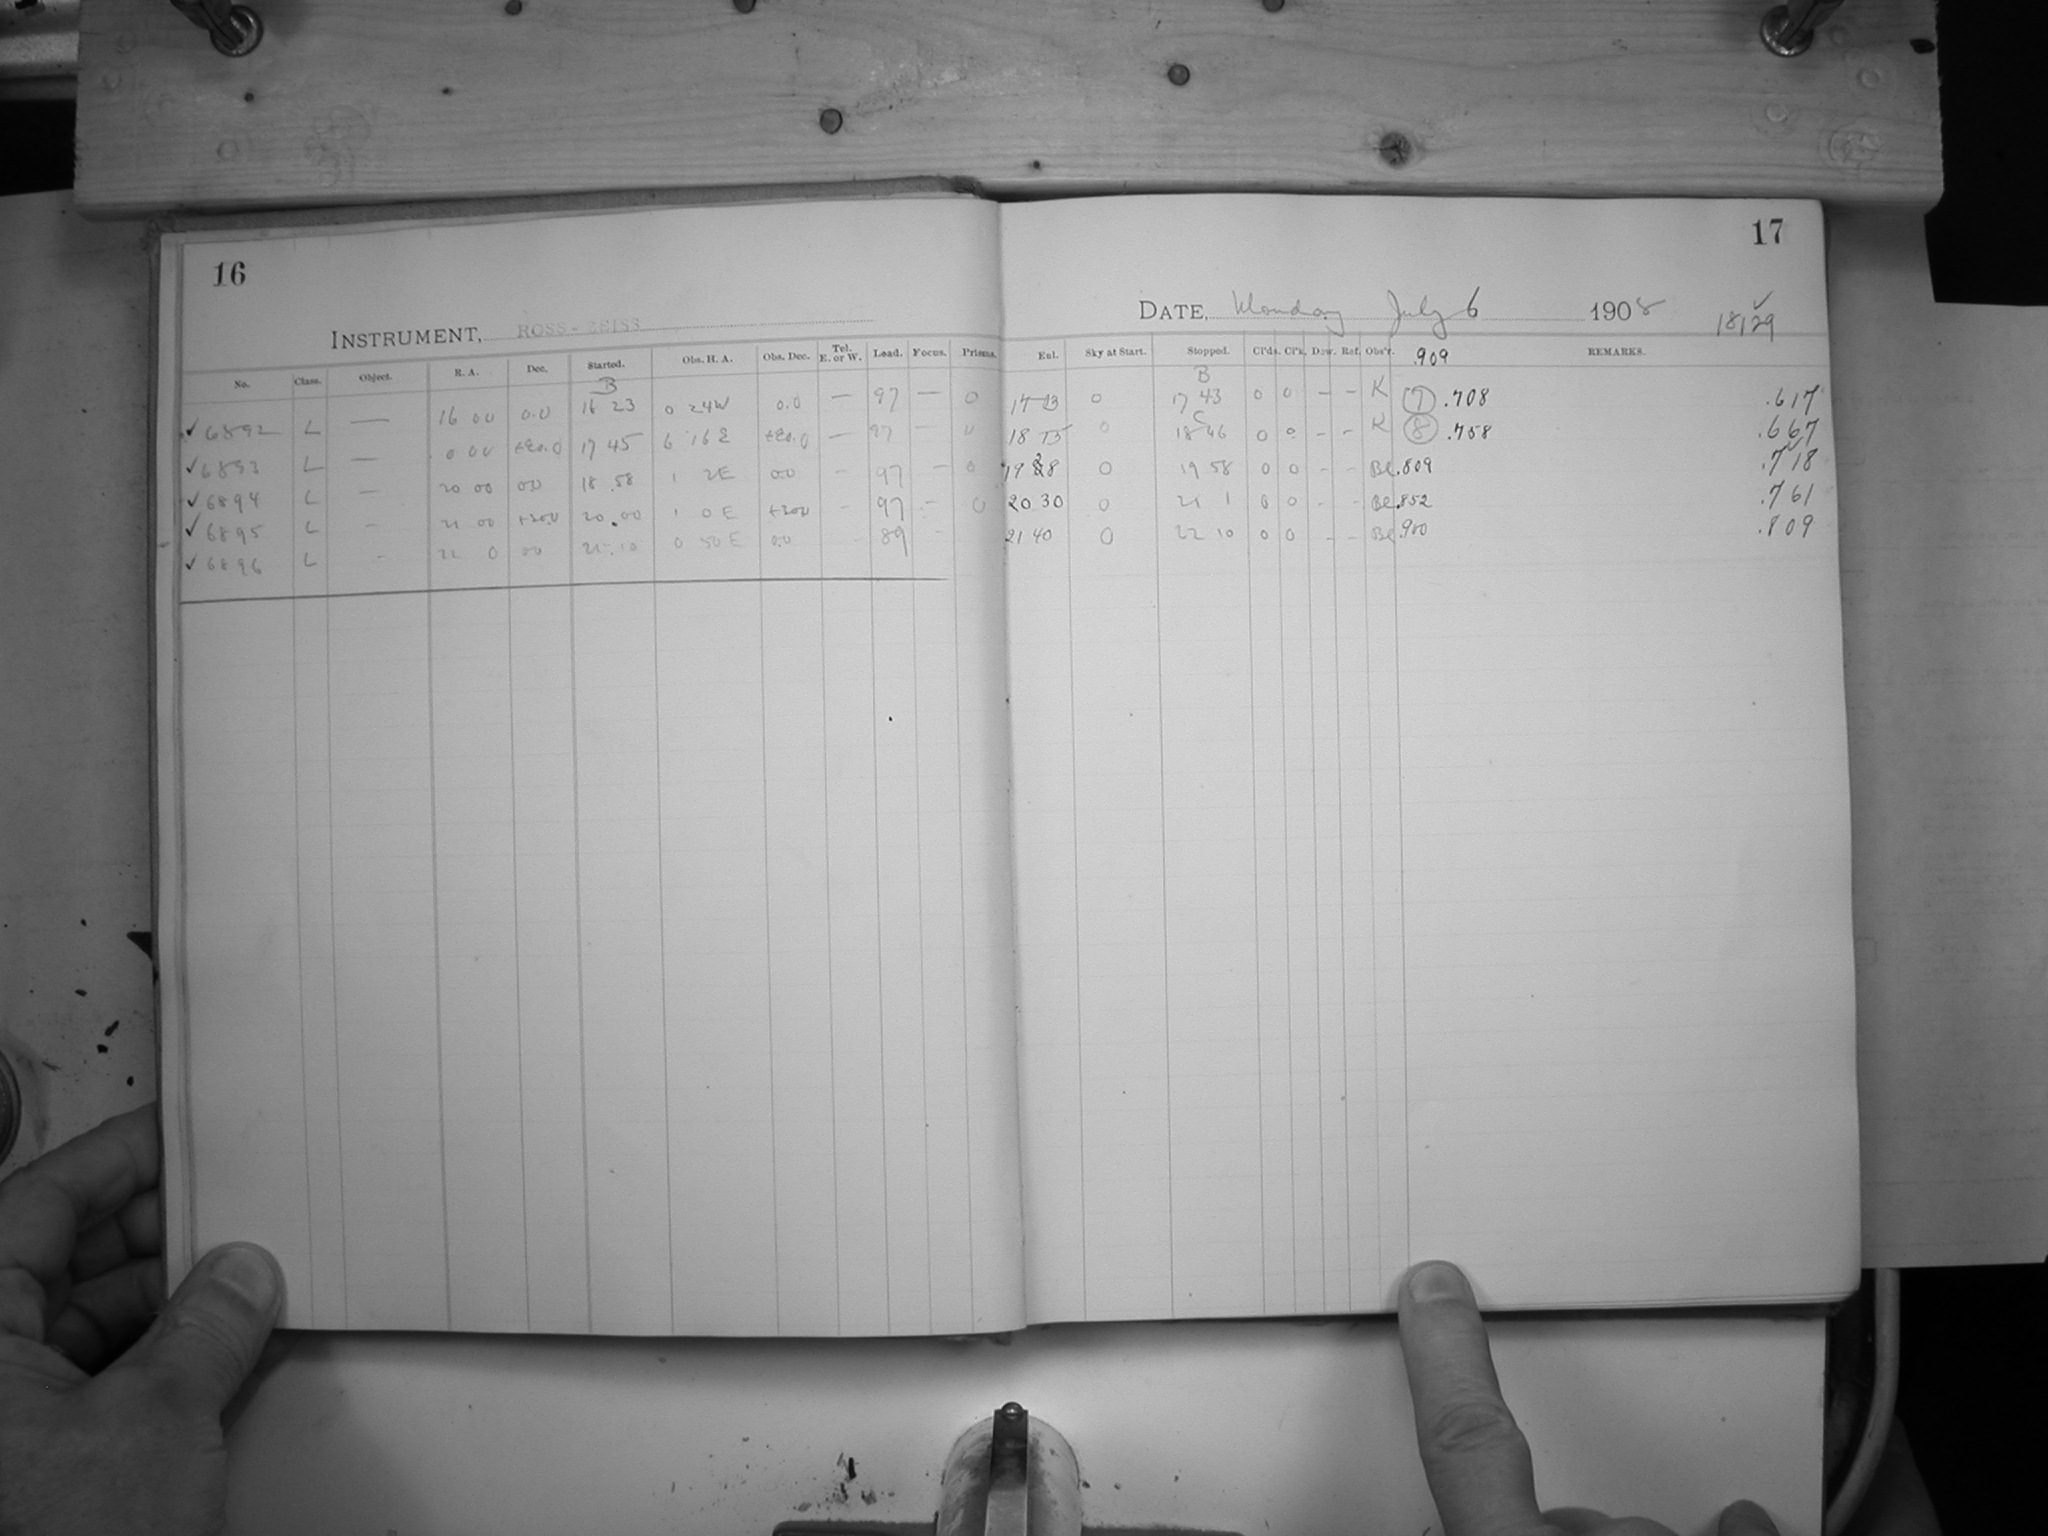 16
INSTRUMENT, ROSS-ZEISS
No. Class. Object. R. A. Dec. Started. Obs. H. A. Obs. Dec. Tel. E. or W. Lead. Focus. Prisms.
B
✓ 6892 L — 16 00 0.0 16 23 0 24W 0.0 — 97 — 0
✓ 6893 L — 0 00 +80.0 17 45 6 16E +80.0 — 97 0
✓ 6894 L — 20 00 0.0 18.58 1 2E 0.0 - 97 — 0
✓ 6895 L - 21 00 +30.0 20.00 1 0E +30.0 - 97 - 0
✓ 6896 L - 22 0 0.0 21.10 0 50E 0.0 - 89 -
17
DATE, Monday July 6 1908
18129
Ex1. Sky at Start. Stopped. Cl'ds. Cl'k. Dew. Ref. Obs'r. .909 REMARKS.
B
17 13 0 17 43 0 0 — — K (7) .708 .617
C
18 15 0 18 46 0 0 - - K (8) .758 .667
19 28 0 19 58 0 0 - - Bl .809 .718
20 30 0 21 1 0 0 - - Bl .852 .761
21 40 0 22 10 0 0 - - Bl .900 .809